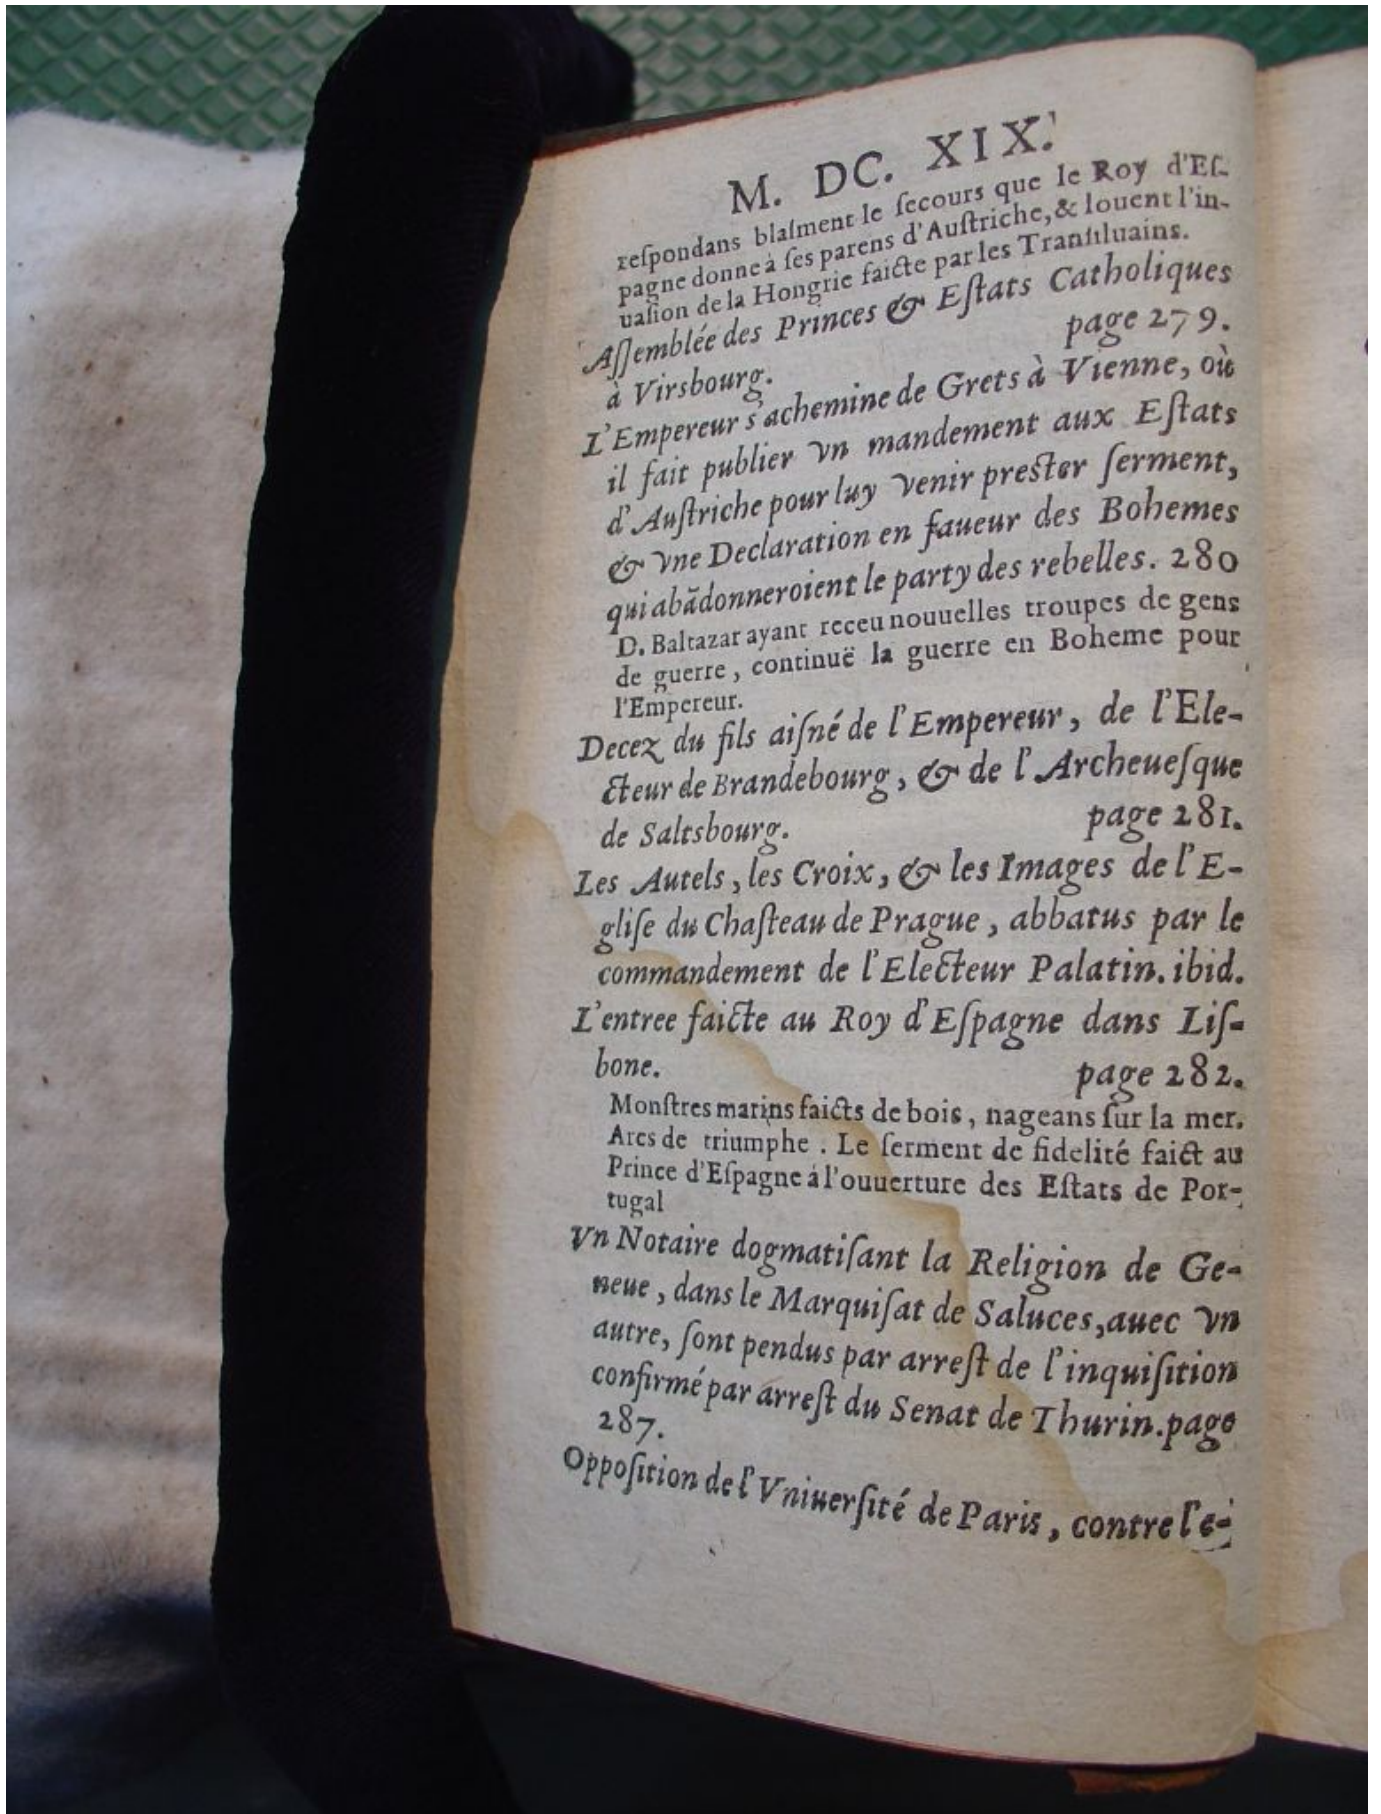 M. DC. XIX.
reſpondans blaſment le ſecours que le Roy d'Eſ-
pagne donne à ſes parens d'Auſtriche, & louent l'in-
uaſion de la Hongrie faicte par les Tranſiluains.
Aſſemblée des Princes & Eſtats Catholiques
à Virsbourg. page 279.
L'Empereur s'achemine de Grets à Vienne, où
il fait publier vn mandement aux Eſtats
d'Auſtriche pour luy venir preſter ſerment,
& vne Declaration en faueur des Bohemes
qui abādonneroient le party des rebelles. 280
D. Baltazar ayant receu nouuelles troupes de gens
de guerre, continuë la guerre en Boheme pour
l'Empereur.
Decez du fils aiſné de l'Empereur, de l'Ele-
cteur de Brandebourg, & de l'Archeueſque
de Saltsbourg. page 281.
Les Autels, les Croix, & les Images de l'E-
gliſe du Chaſteau de Prague, abbatus par le
commandement de l'Electeur Palatin. ibid.
L'entree faicte au Roy d'Eſpagne dans Liſ-
bone. page 282.
Monſtres marins faicts de bois, nageans ſur la mer.
Arcs de triumphe. Le ſerment de fidelité faict au
Prince d'Eſpagne à l'ouuerture des Eſtats de Por-
tugal
Vn Notaire dogmatiſant la Religion de Ge-
neue, dans le Marquiſat de Saluces, auec vn
autre, ſont pendus par arreſt de l'inquiſition
confirmé par arreſt du Senat de Thurin. page
287.
Oppoſition de l'Vniuerſité de Paris, contre l'e-